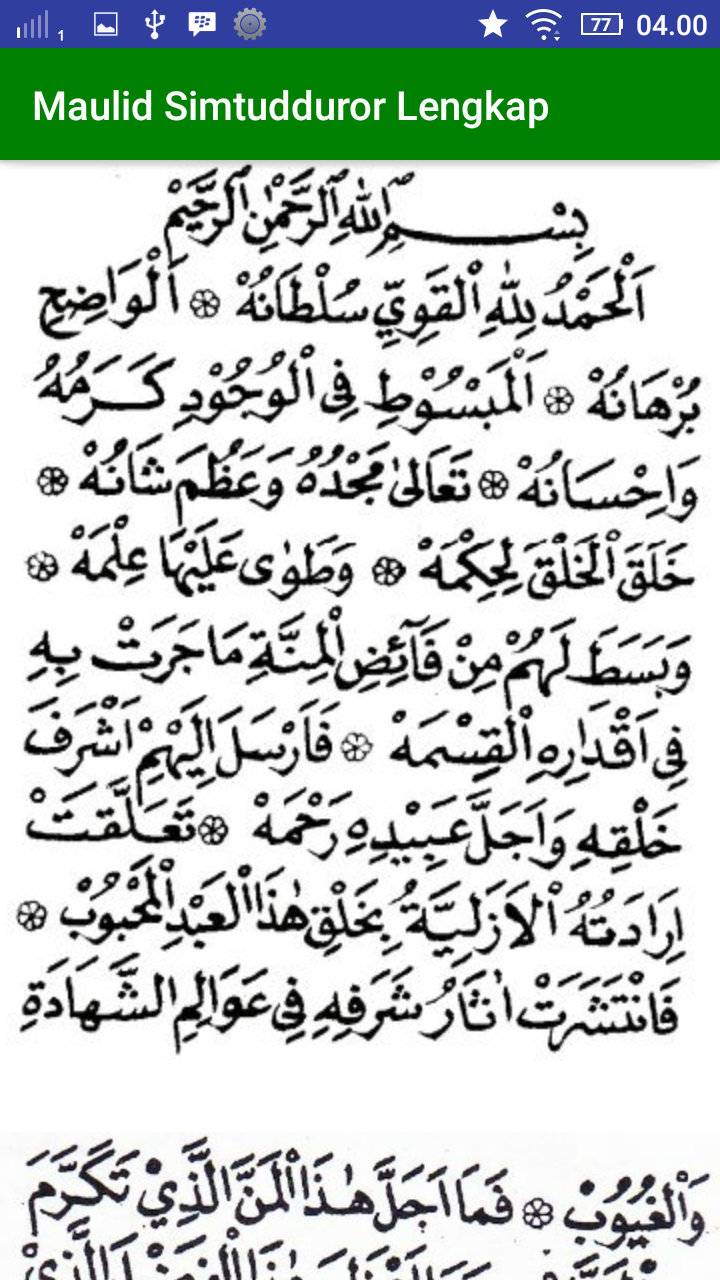 1 77 04.00
Maulid Simtudduror Lengkap
بِسْمِ اللهِ الرَّحْمٰنِ الرَّحِيْمِ
اَلْحَمْدُ لِلّٰهِ الْقَوِيِّ سُلْطَانُهْ ۞ اَلْوَاضِحِ
بُرْهَانُهْ ۞ اَلْمَبْسُوْطِ فِى الْوُجُوْدِ كَرَمُهُ
وَاِحْسَانُهْ ۞ تَعَالىٰ مَجْدُهُ وَعَظُمَ شَانُهْ ۞
خَلَقَ الْخَلْقَ لِحِكْمَهْ ۞ وَطَوٰى عَلَيْهَا عِلْمَهْ ۞
وَبَسَطَ لَهُمْ مِنْ فَآئِضِ الْمِنَّةِ مَا جَرَتْ بِهِ
فِي اَقْدَارِهِ الْقِسْمَهْ ۞ فَاَرْسَلَ اِلَيْهِمْ اَشْرَفَ
خَلْقِهِ وَاَجَلَّ عَبِيْدِهِ رَحْمَهْ ۞ تَعَلَّقَتْ
اِرَادَتُهُ الْاَزَلِيَّةُ بِخَلْقِ هٰذَا الْعَبْدِ الْمَحْبُوْبْ ۞
فَانْتَشَرَتْ اٰثَارُ شَرَفِهِ فِي عَوَالِمِ الشَّهَادَةِ
وَالْغُيُوْبْ ۞ فَمَا اَجَلَّ هٰذَا الْمَنَّ الَّذِيْ تَكَرَّمَ